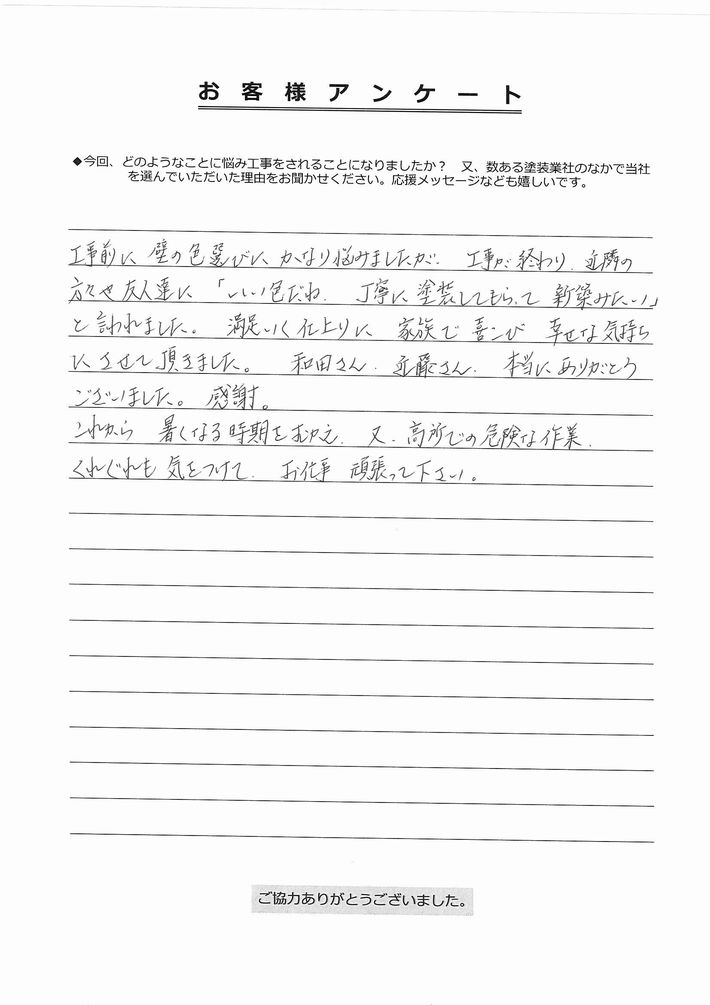 お客様アンケート
◆今回、どのようなことに悩み工事をされることになりましたか？　又、数ある塗装業社のなかで当社
を選んでいただいた理由をお聞かせください。応援メッセージなども嬉しいです。
工事前に 壁の色選びに かなり悩みましたが、 工事が終わり、近隣の
方々や友人達に 「いい色だね、 丁寧に塗装してもらって 新築みたい」
と言われました。 満足いく仕上りに 家族で喜こび 幸せな気持ち
にさせて頂きました。 和田さん、近藤さん、 本当にありがとう
ございました。 感謝。
これから 暑くなる時期をむかえ、 又、高所での危険な作業、
くれぐれも気をつけて、 お仕事 頑張って下さい。
ご協力ありがとうございました。